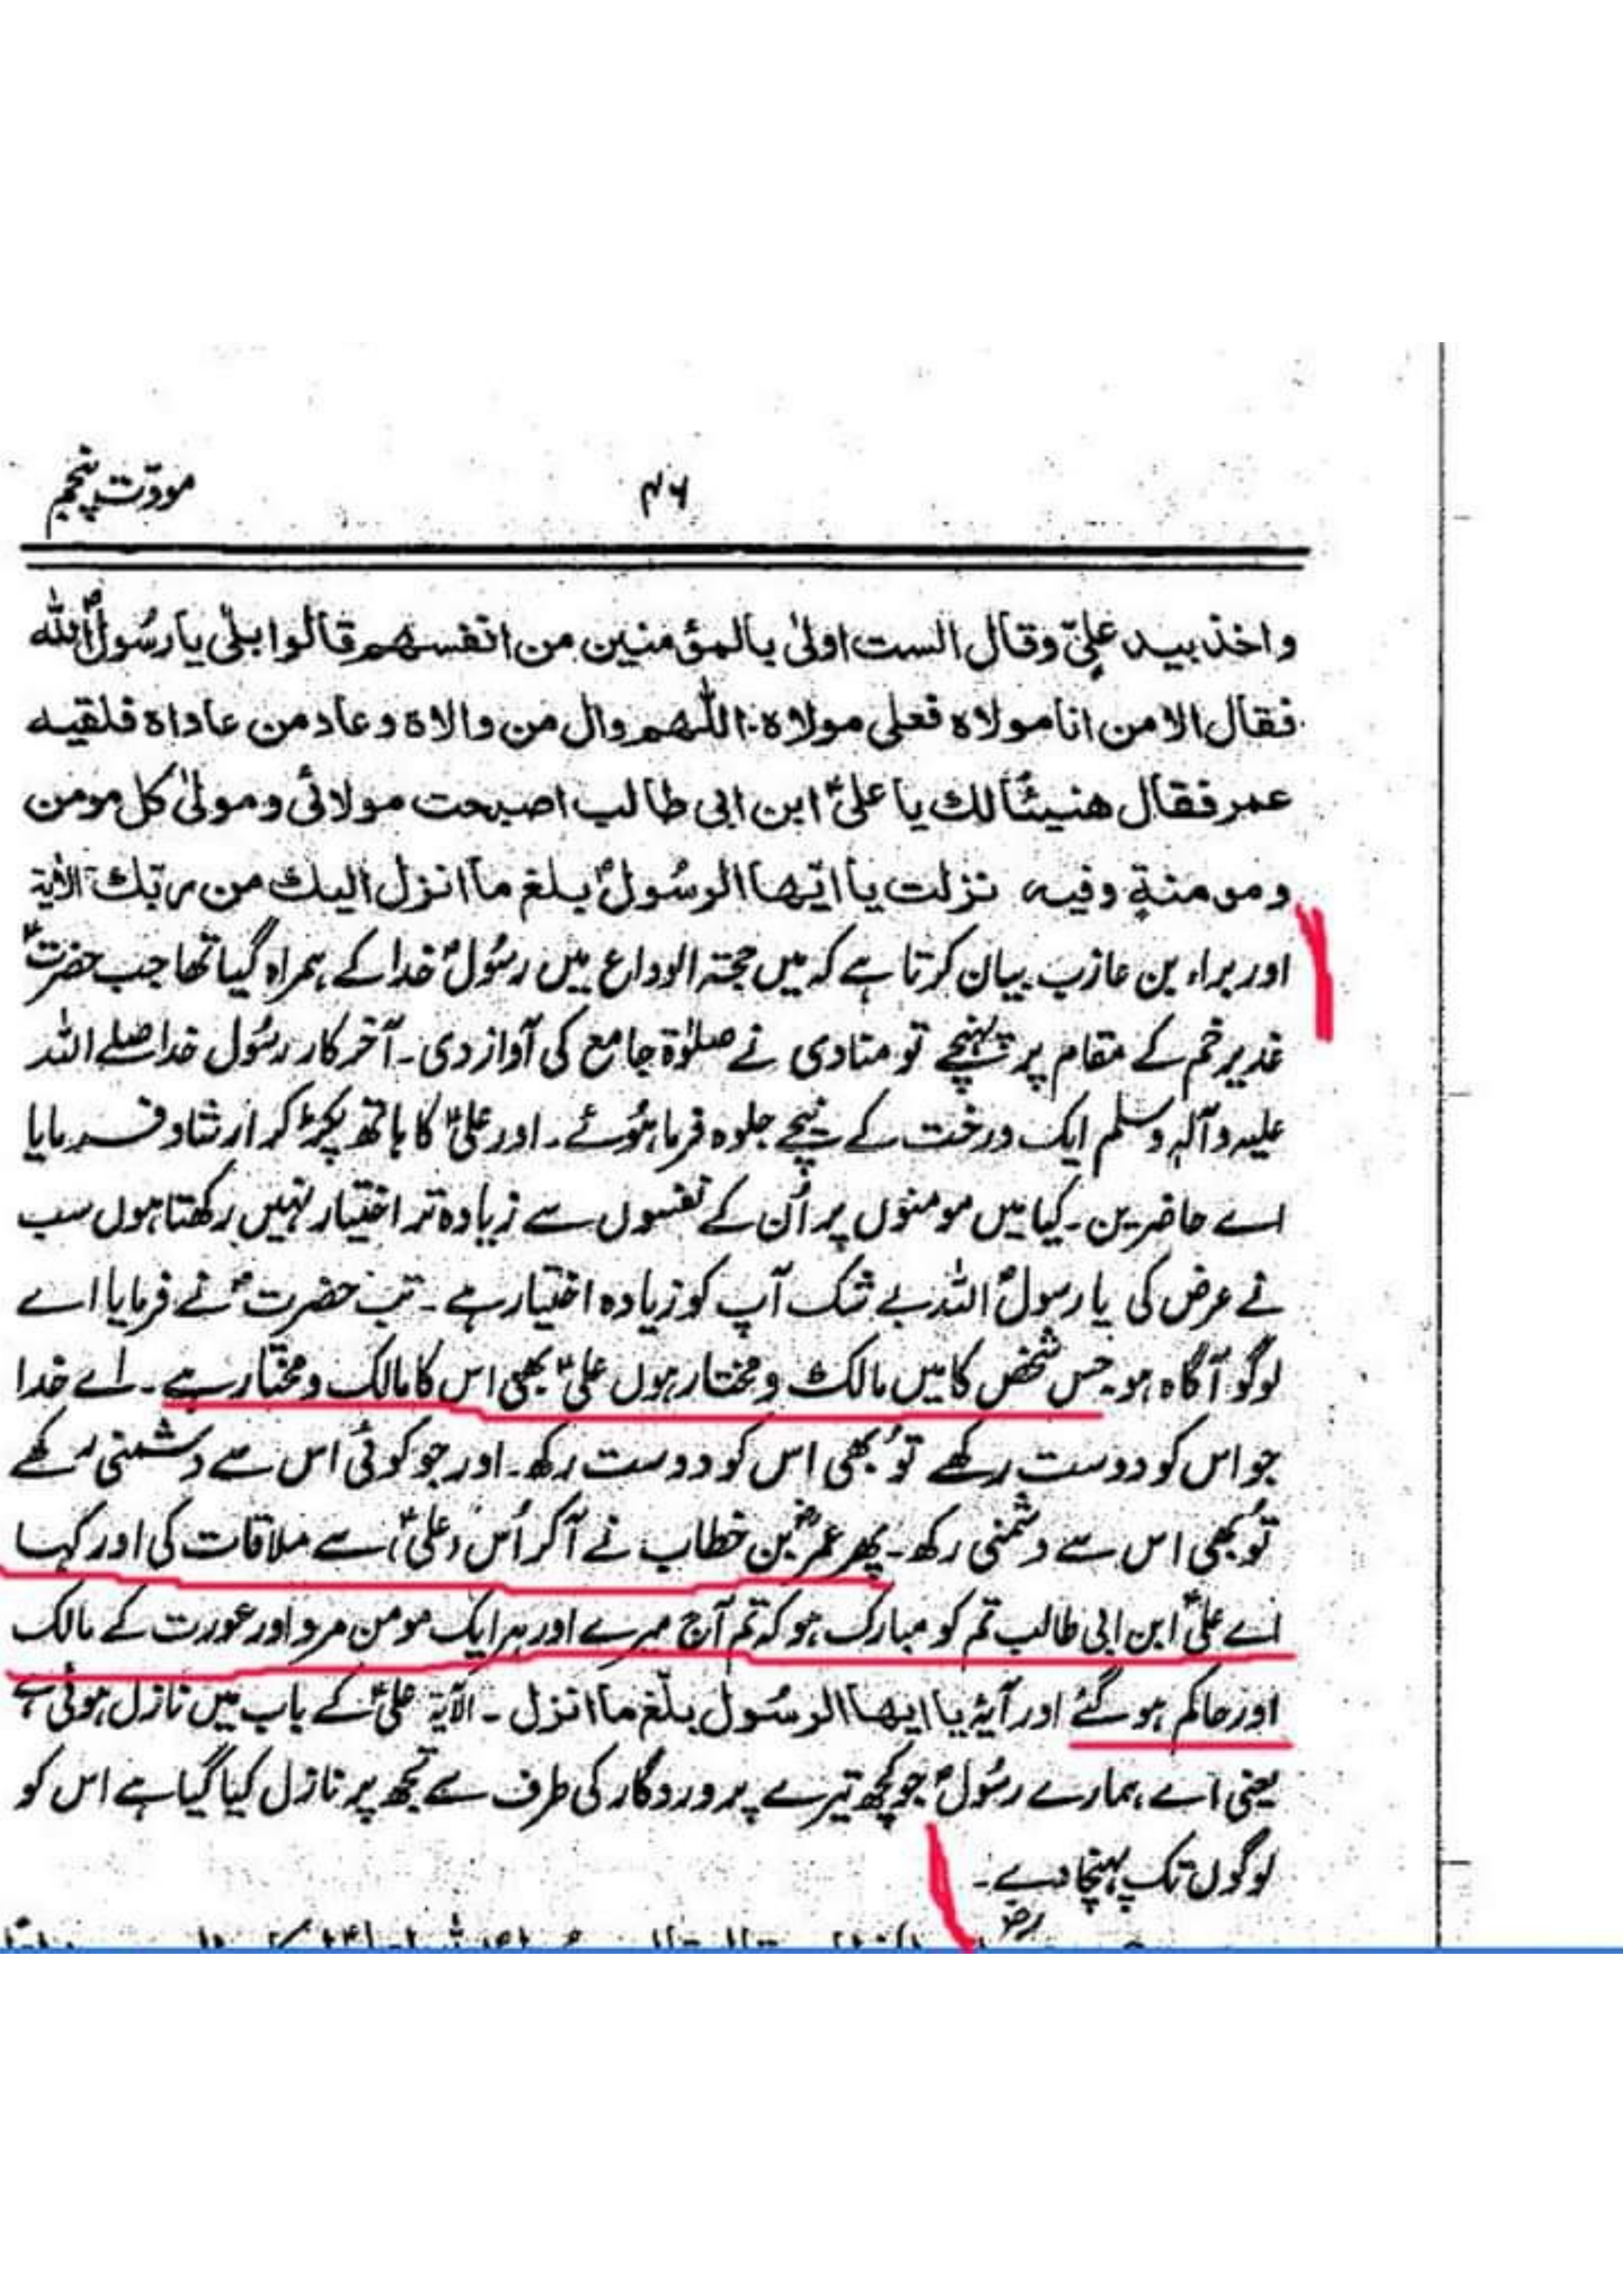 مودّت پنجم
۴۶
واخذ بید علیّ وقال الست اولیٰ بالمؤمنین من انفسهم قالوا بلیٰ یا رسُول اللہ
فقال الا من انا مولاه فعلی مولاه اللّٰهم وال من والاه وعاد من عاداه فلقیه
عمر فقال هنیئًا لك یا علیّ ابن ابی طالب اصبحت مولائی ومولیٰ کل مومن
ومومنةٍ وفیه نزلت یا ایّها الرسُول بلغ ما انزل الیك من ربّك الاٰیة
اور براء بن عازب بیان کرتا ہے کہ میں حجۃ الوداع میں رسُولؐ خدا کے ہمراہ گیا تھا جب حضرتؐ
غدیر خم کے مقام پر پہنچے تو منادی نے صلوٰۃ جامع کی آواز دی۔ آخر کار رسُول خدا صلے اللہ
علیہ وآلہٖ وسلم ایک درخت کے نیچے جلوہ فرما ہوُئے۔ اور علیؑ کا ہاتھ پکڑ کر ارشاد فرمایا
اے حاضرین۔ کیا میں مومنوں پر اُن کے نفسوں سے زیادہ تر اختیار نہیں رکھتا ہوں سب
نے عرض کی یا رسولؐ اللہ بے شک آپ کو زیادہ اختیار ہے۔ تب حضرتؐ نے فرمایا اے
لوگو آگاہ ہو۔ جس شخص کا میں مالک و مختار ہوں علیؑ بھی اس کا مالک و مختار ہے۔ اے خدا
جو اس کو دوست رکھے تُو بھی اس کو دوست رکھ۔ اور جو کوئی اس سے دشمنی رکھے
تُو بھی اس سے دشمنی رکھ۔ پھر عمرؓ بن خطاب نے آ کر اُس (علیؑ) سے ملاقات کی اور کہا
اے علیؑ ابن ابی طالب تم کو مبارک ہو کہ تم آج میرے اور ہر ایک مومن مرد اور عورت کے مالک
اور حاکم ہو گئے اور آیۂ یا ایها الرسُول بلّغ ما انزل۔ الآیۃ علیؑ کے باب میں نازل ہوئی ہے
یعنی اے ہمارے رسُولؐ جو کچھ تیرے پروردگار کی طرف سے تجھ پر نازل کیا گیا ہے اس کو
لوگوں تک پہنچا دے۔